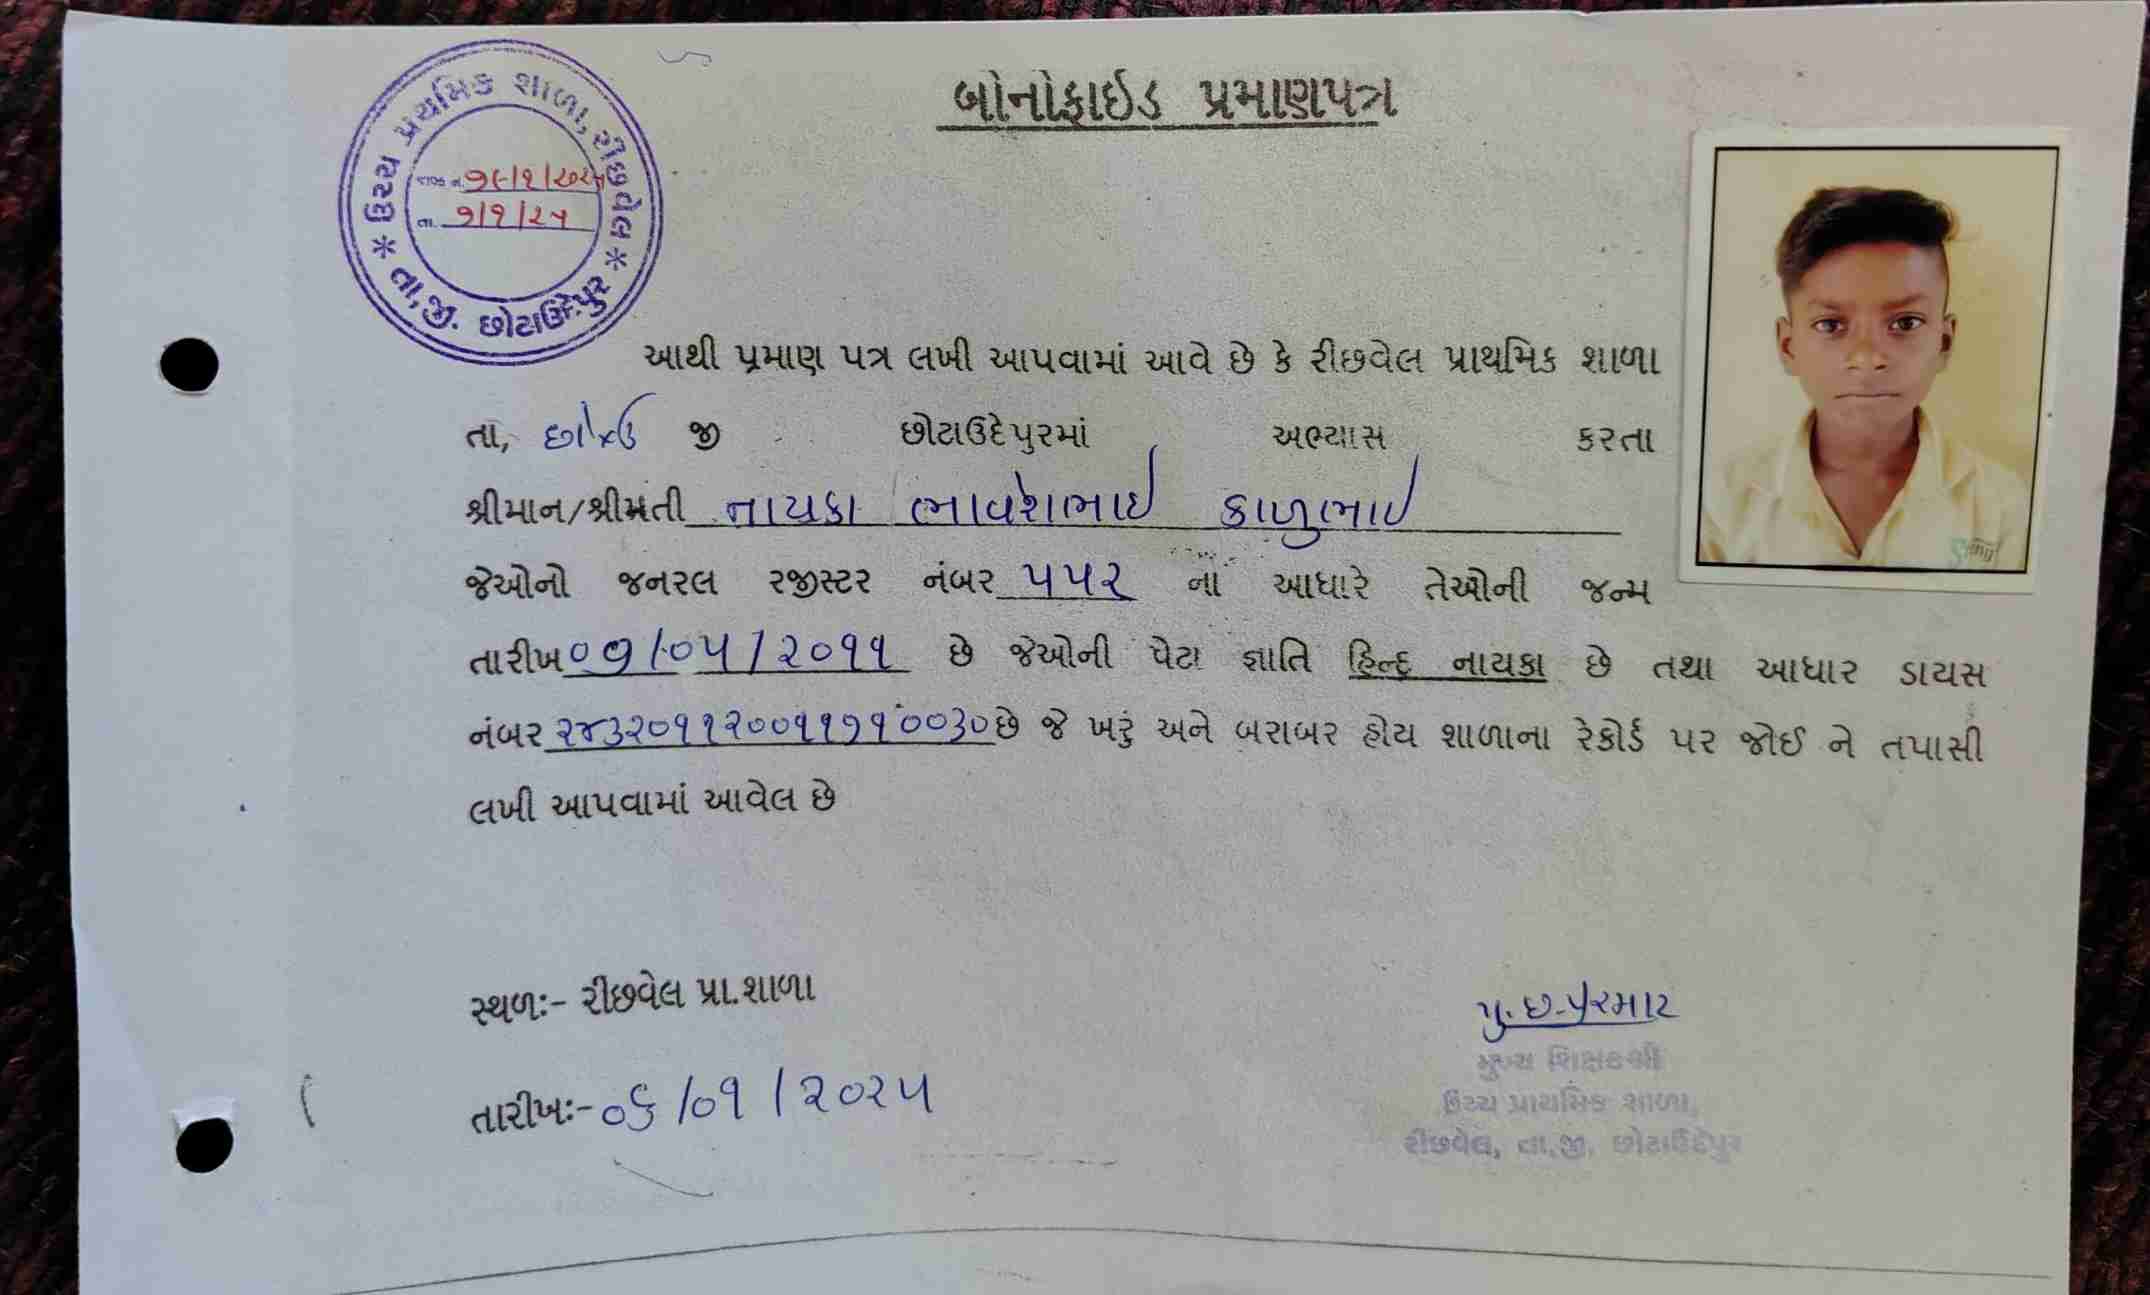 બોનોફાઈડ પ્રમાણપત્ર
ઉચ્ચ પ્રાથમિક શાળા, રીંછવેલ
તા.
* તા,જી. છોટાઉદેપુર *
આથી પ્રમાણ પત્ર લખી આપવામાં આવે છે કે રીછવેલ પ્રાથમિક શાળા
તા, છોટાઉ જી છોટાઉદેપુરમાં અભ્યાસ કરતા
શ્રીમાન/શ્રીમતી નાયકા ભાવેશભાઈ કાળુભાઈ
જેઓનો જનરલ રજીસ્ટર નંબર ૫૫૨ નાં આધારે તેઓની જન્મ
તારીખ ૦૭/૦૫/૨૦૧૧ છે જેઓની પેટા જ્ઞાતિ હિન્દુ નાયકા છે તથા આધાર ડાયસ
નંબર ૨૪૩૨૦૧૧૨૦૦૧૧૭૧૦૦૩૦ છે જે ખરું અને બરાબર હોય શાળાના રેકોર્ડ પર જોઈ ને તપાસી
લખી આપવામાં આવેલ છે
સ્થળઃ- રીછવેલ પ્રા.શાળા
પુ.છ.પરમાર
મુખ્ય શિક્ષકશ્રી
ઉચ્ચ પ્રાથમિક શાળા,
રીછવેલ, તા,જી, છોટાઉદેપુર
તારીખઃ- ૦૬/૦૧/૨૦૨૫